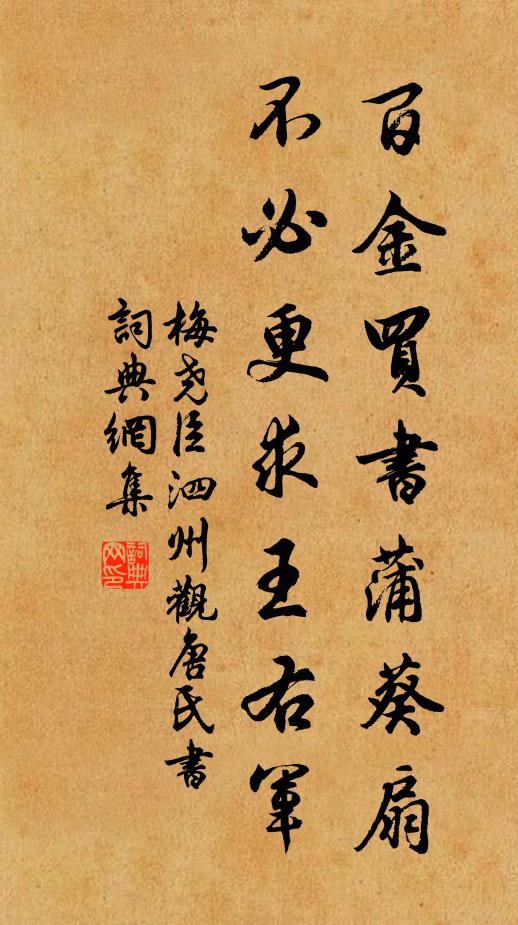 百金買書蒲葵扇
不必更求王右軍
梅尧臣泗州觀唐氏書
詞典網集
詞典网印